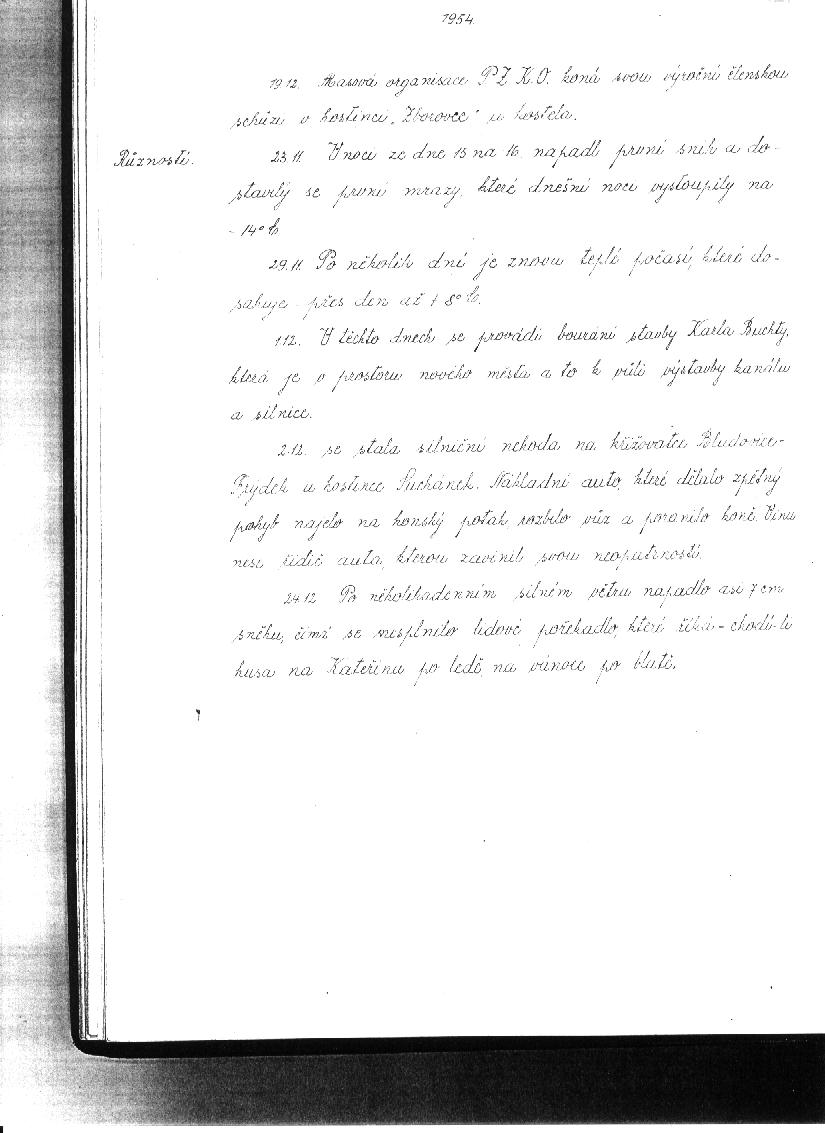 1954.
19.12. Masová organisace P.Z.K.O. koná svou výroční členskou
schůzi v hostinci „Zborovec“ u kostela.
Různosti.
23.11. V noci ze dne 15 na 16. napadl první sníh a do-
stavily se první mrazy, které dnešní noci vystoupily na
-14° C
29.11. Po několik dní je znovu teplé počasí, které do-
sahuje přes den až + 8° C.
1.12. V těchto dnech se provádí bourání stavby Karla Buchty,
která je v prostoru nového města a to k vůli výstavby kanálu
a silnice.
2.12. se stala silniční nehoda na křižovatce Bludovice-
Frýdek u hostince Suchánek. Nákladní auto, které dělalo zpětný
pohyb najelo na koňský poťah rozbilo vůz a poranilo koně. Vinu
nese řidič auta, kterou zavinil svou neopatrností.
24.12. Po několikadenním silném větru napadlo asi 7 cm
sněhu, čímž se nesplnilo lidové pořekadlo, které říká - chodí-li
husa na Kateřinu po ledě, na vánoce po blatě.